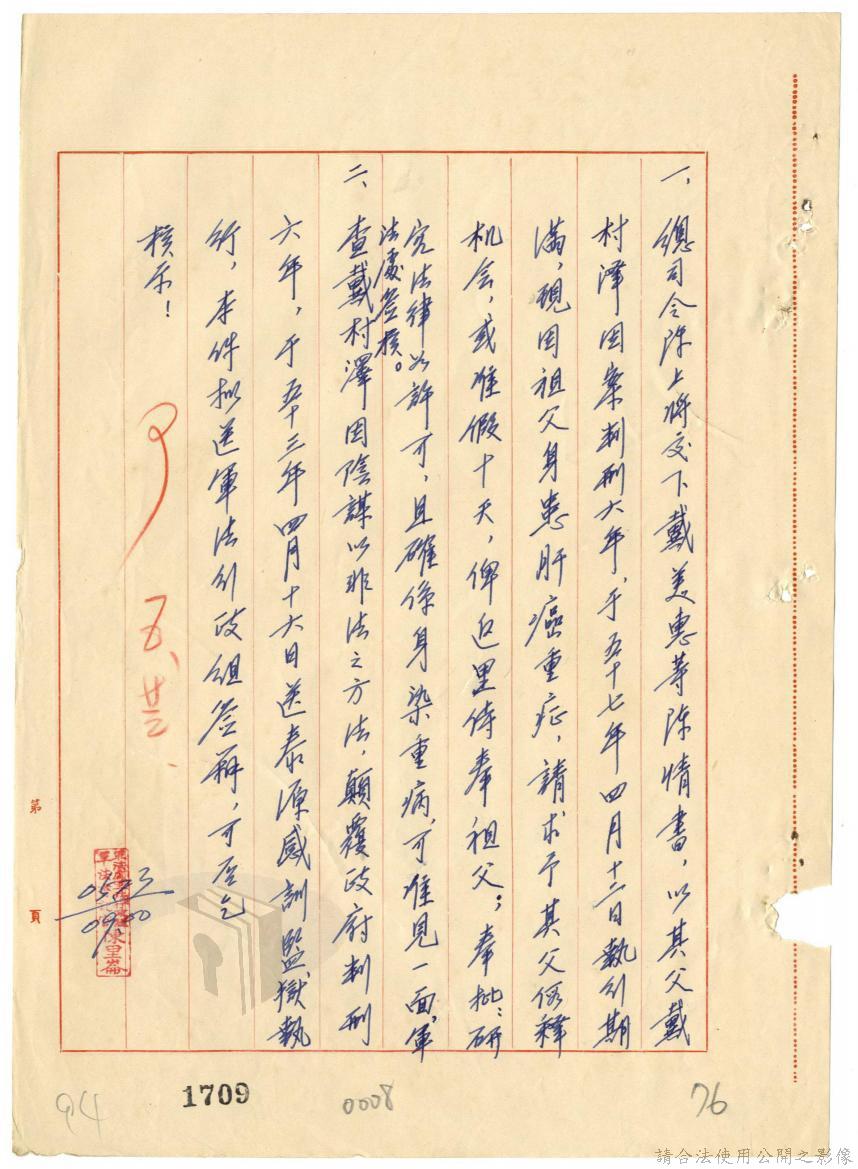 一、總司令陳上將交下戴美惠等陳情書，以其父戴
村澤因案判刑六年，于五十七年四月十二日執行期
滿，現因祖父身患肝癌重症，請求予其父假釋
机会，或准假十天，俾返里侍奉祖父；奉批：研
究法律如許可，且確係身染重病，可准見一面，軍
法處簽核。
二、查戴村澤因陰謀以非法之方法，顛覆政府判刑
六年，于五十三年四月十六日送泰源感訓監獄執
行，本件擬送軍法行政組簽辦，可否乞
核示！
五、廿三
0523
0900
陳里崙
第
頁
94
1709
0008
76
請合法使用公開之影像